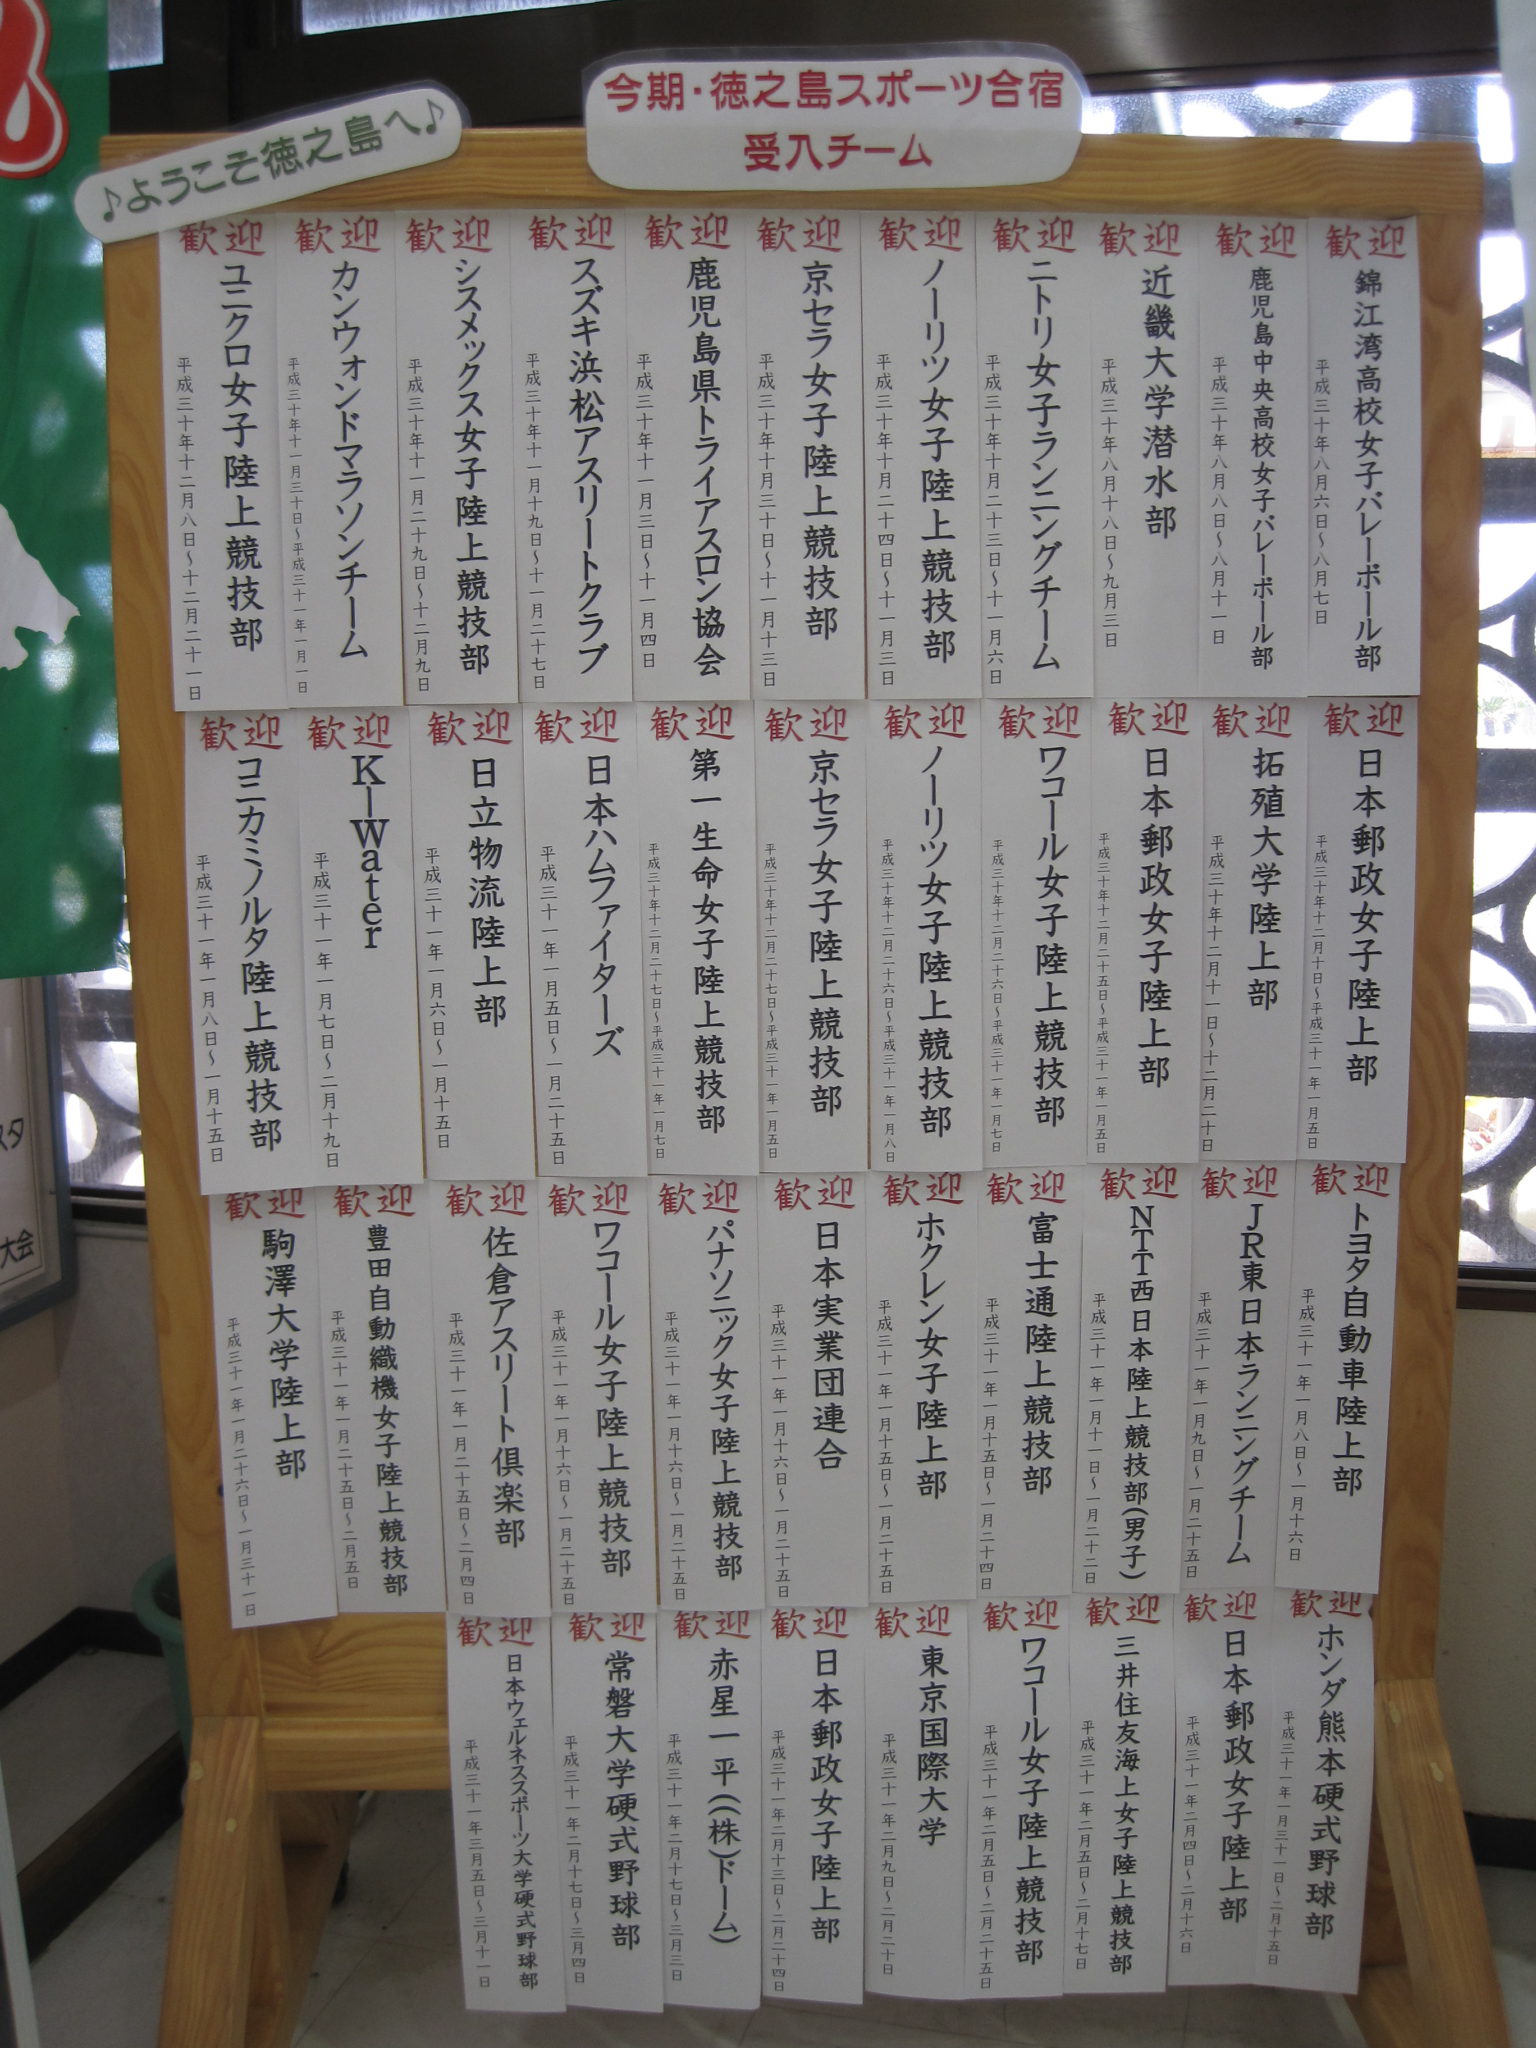 ♪ようこそ徳之島へ♪
今期・徳之島スポーツ合宿
受入チーム
歓迎
錦江湾高校女子バレーボール部
平成三十年八月六日～八月七日
歓迎
鹿児島中央高校女子バレーボール部
平成三十年八月八日～八月十一日
歓迎
近畿大学潜水部
平成三十年八月十八日～九月三日
歓迎
ニトリ女子ランニングチーム
平成三十年十月二十三日～十一月六日
歓迎
ノーリツ女子陸上競技部
平成三十年十月二十四日～十一月三日
歓迎
京セラ女子陸上競技部
平成三十年十月三十日～十一月十三日
歓迎
鹿児島県トライアスロン協会
平成三十年十一月三日～十一月四日
歓迎
スズキ浜松アスリートクラブ
平成三十年十一月十九日～十一月二十七日
歓迎
シスメックス女子陸上競技部
平成三十年十一月二十九日～十二月九日
歓迎
カンウォンドマラソンチーム
平成三十年十一月三十日～平成三十一年一月一日
歓迎
ユニクロ女子陸上競技部
平成三十年十二月八日～十二月二十一日
歓迎
日本郵政女子陸上部
平成三十年十二月十日～平成三十一年一月五日
歓迎
拓殖大学陸上部
平成三十年十二月十一日～十二月二十日
歓迎
日本郵政女子陸上部
平成三十年十二月二十五日～平成三十一年一月五日
歓迎
ワコール女子陸上競技部
平成三十年十二月二十六日～平成三十一年一月七日
歓迎
ノーリツ女子陸上競技部
平成三十年十二月二十六日～平成三十一年一月八日
歓迎
京セラ女子陸上競技部
平成三十年十二月二十七日～平成三十一年一月五日
歓迎
第一生命女子陸上競技部
平成三十年十二月二十七日～平成三十一年一月七日
歓迎
日本ハムファイターズ
平成三十一年一月五日～一月二十五日
歓迎
日立物流陸上部
平成三十一年一月六日～一月十五日
歓迎
K－Water
平成三十一年一月七日～二月十九日
歓迎
コニカミノルタ陸上競技部
平成三十一年一月八日～一月十五日
歓迎
トヨタ自動車陸上部
平成三十一年一月八日～一月十六日
歓迎
JR東日本ランニングチーム
平成三十一年一月九日～一月二十五日
歓迎
NTT西日本陸上競技部(男子)
平成三十一年一月十一日～一月二十二日
歓迎
富士通陸上競技部
平成三十一年一月十五日～一月二十四日
歓迎
ホクレン女子陸上部
平成三十一年一月十五日～一月二十五日
歓迎
日本実業団連合
平成三十一年一月十六日～一月二十五日
歓迎
パナソニック女子陸上競技部
平成三十一年一月十六日～一月二十五日
歓迎
ワコール女子陸上競技部
平成三十一年一月十六日～一月二十五日
歓迎
佐倉アスリート倶楽部
平成三十一年一月二十五日～二月四日
歓迎
豊田自動織機女子陸上競技部
平成三十一年一月二十五日～二月五日
歓迎
駒澤大学陸上部
平成三十一年一月二十六日～一月三十一日
歓迎
ホンダ熊本硬式野球部
平成三十一年一月三十一日～二月十五日
歓迎
日本郵政女子陸上部
平成三十一年二月四日～二月十六日
歓迎
三井住友海上女子陸上競技部
平成三十一年二月五日～二月十七日
歓迎
ワコール女子陸上競技部
平成三十一年二月五日～二月二十五日
歓迎
東京国際大学
平成三十一年二月九日～二月二十日
歓迎
日本郵政女子陸上部
平成三十一年二月十三日～二月二十四日
歓迎
赤星一平((株)ドーム)
平成三十一年二月十七日～三月三日
歓迎
常磐大学硬式野球部
平成三十一年二月十七日～三月四日
歓迎
日本ウェルネススポーツ大学硬式野球部
平成三十一年三月五日～三月十一日
スタ
大会